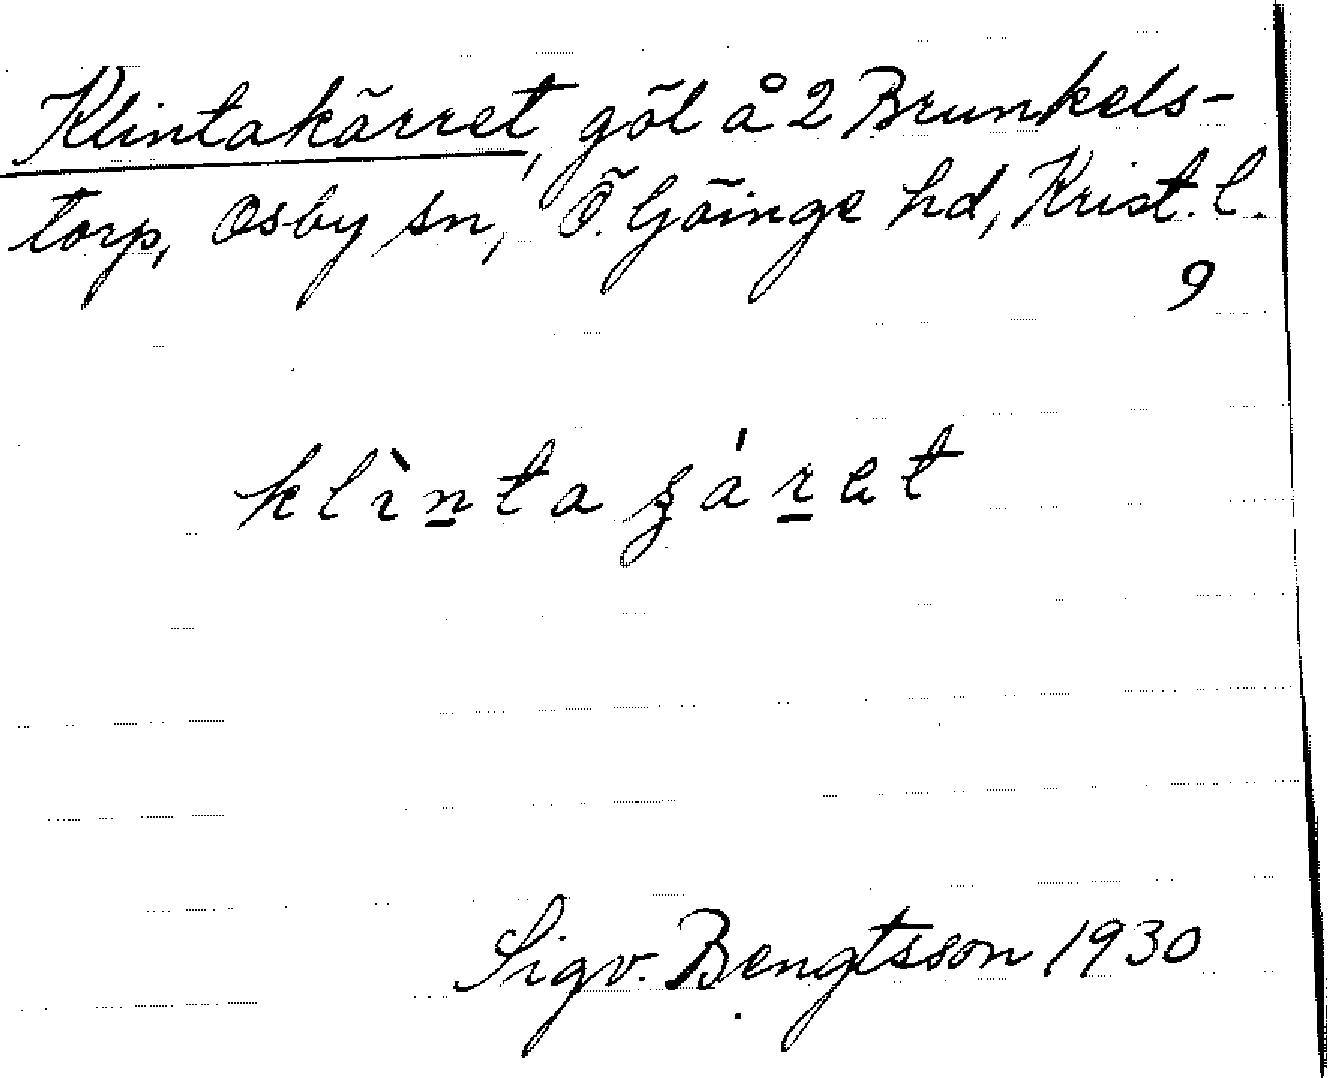 Klintakärret, göl å 2 Brunkels-
torp, Osby sn, Ö. Göinge hd, Krist. l.
9
Sigv. Bengtsson 1930